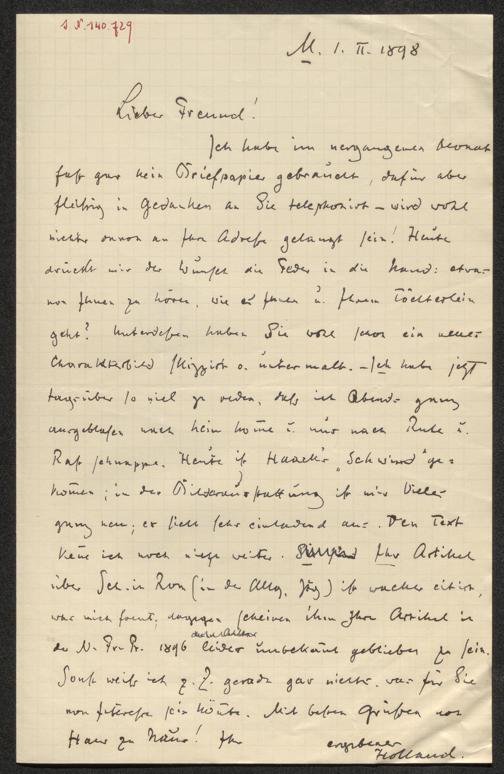 I. N. 140.729
M. 1. II. 1898
Lieber Freund!
Ich habe im vergangenen Monat
fast gar kein Briefpapier gebraucht, dafür aber
fleißig in Gedanken an Sie telephonirt – wird wohl
nichts davon an Ihre Adresse gelangt sein! Heute
drückt mir der Wunsch die Feder in die Hand: etwas
von Ihnen zu hören, wie es Ihnen u. Ihrem Töchterlein
geht? Unterdeßen haben Sie wohl schon ein neues
Charakterbild skizzirt o. untermalt. – Ich habe jetzt
tagsüber so viel zu reden, daß ich Abends ganz
ausgeblasen nach heim kome u. nur nach Ruhe u.
Rast schnappe. Heute ist Haack's „Schwind“ ge=
komen; in der Bilderausstattung ist mir Vieles
ganz neu; er sieht sehr einladend aus. Den Text
kene ich noch nicht weiter. Ihr Artikel
über Sch. in Rom (in der Allg. Ztg) ist wacker citirt,
was mich freut; dagegen scheinen ihm Ihre Artikel in
der N. Fr. Pr. 1896 leider unbekant geblieben zu sein.
Sonst weiß ich z. Z. gerade gar nichts, was für Sie
von Interesse sein könte. Mit besten Grüßen von
Haus zu Haus! Ihr
ergebener
Holland.